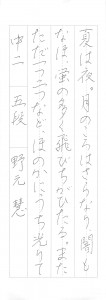 夏は夜。月のころはさらなり、闇も
なほ、蛍の多く飛びちがひたる。また
ただ一つ二つなど、ほのかにうち光りて
中二 五段 野元 慧